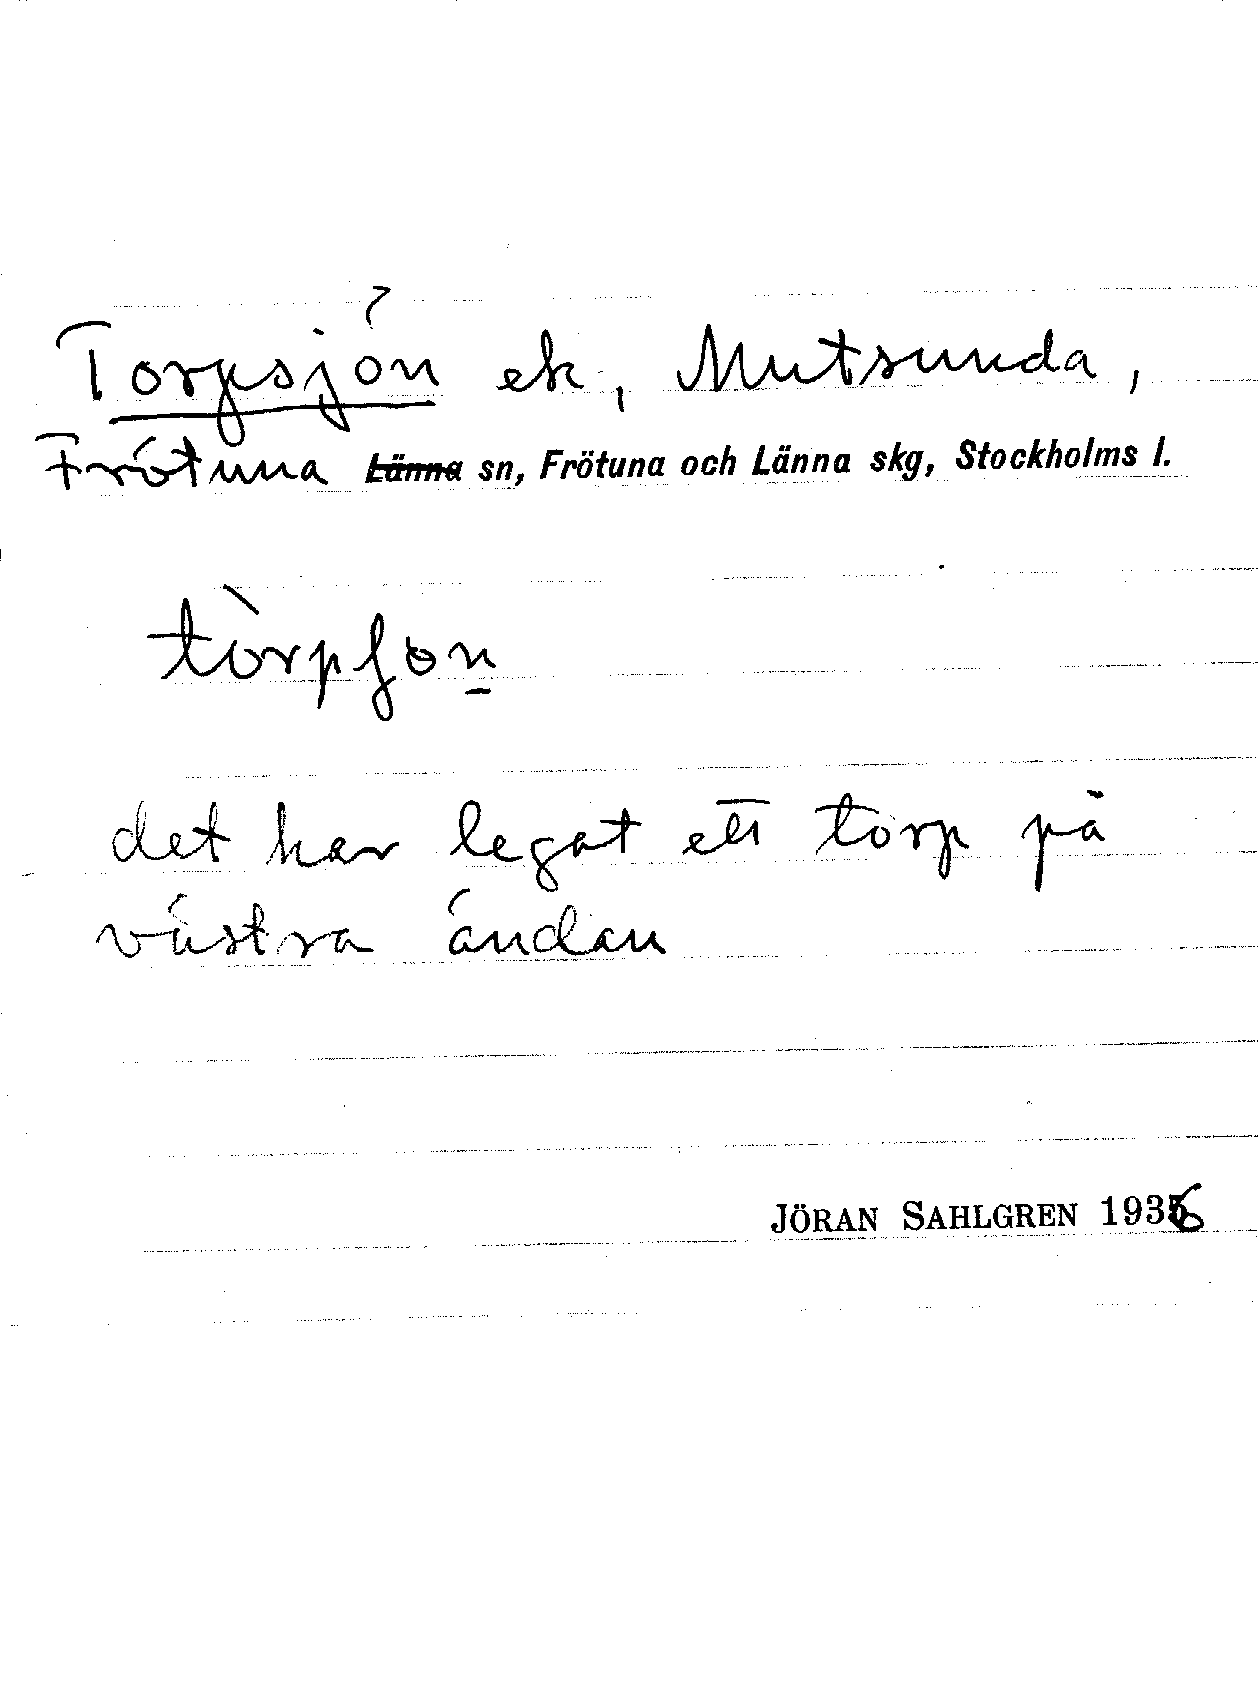 Torpsjön ek, Mutsunda,
Frötuna Länna sn, Frötuna och Länna skg, Stockholms l.
tòrpʃɵn
det har legat ett torp på
västra ändan
JÖRAN SAHLGREN 1936